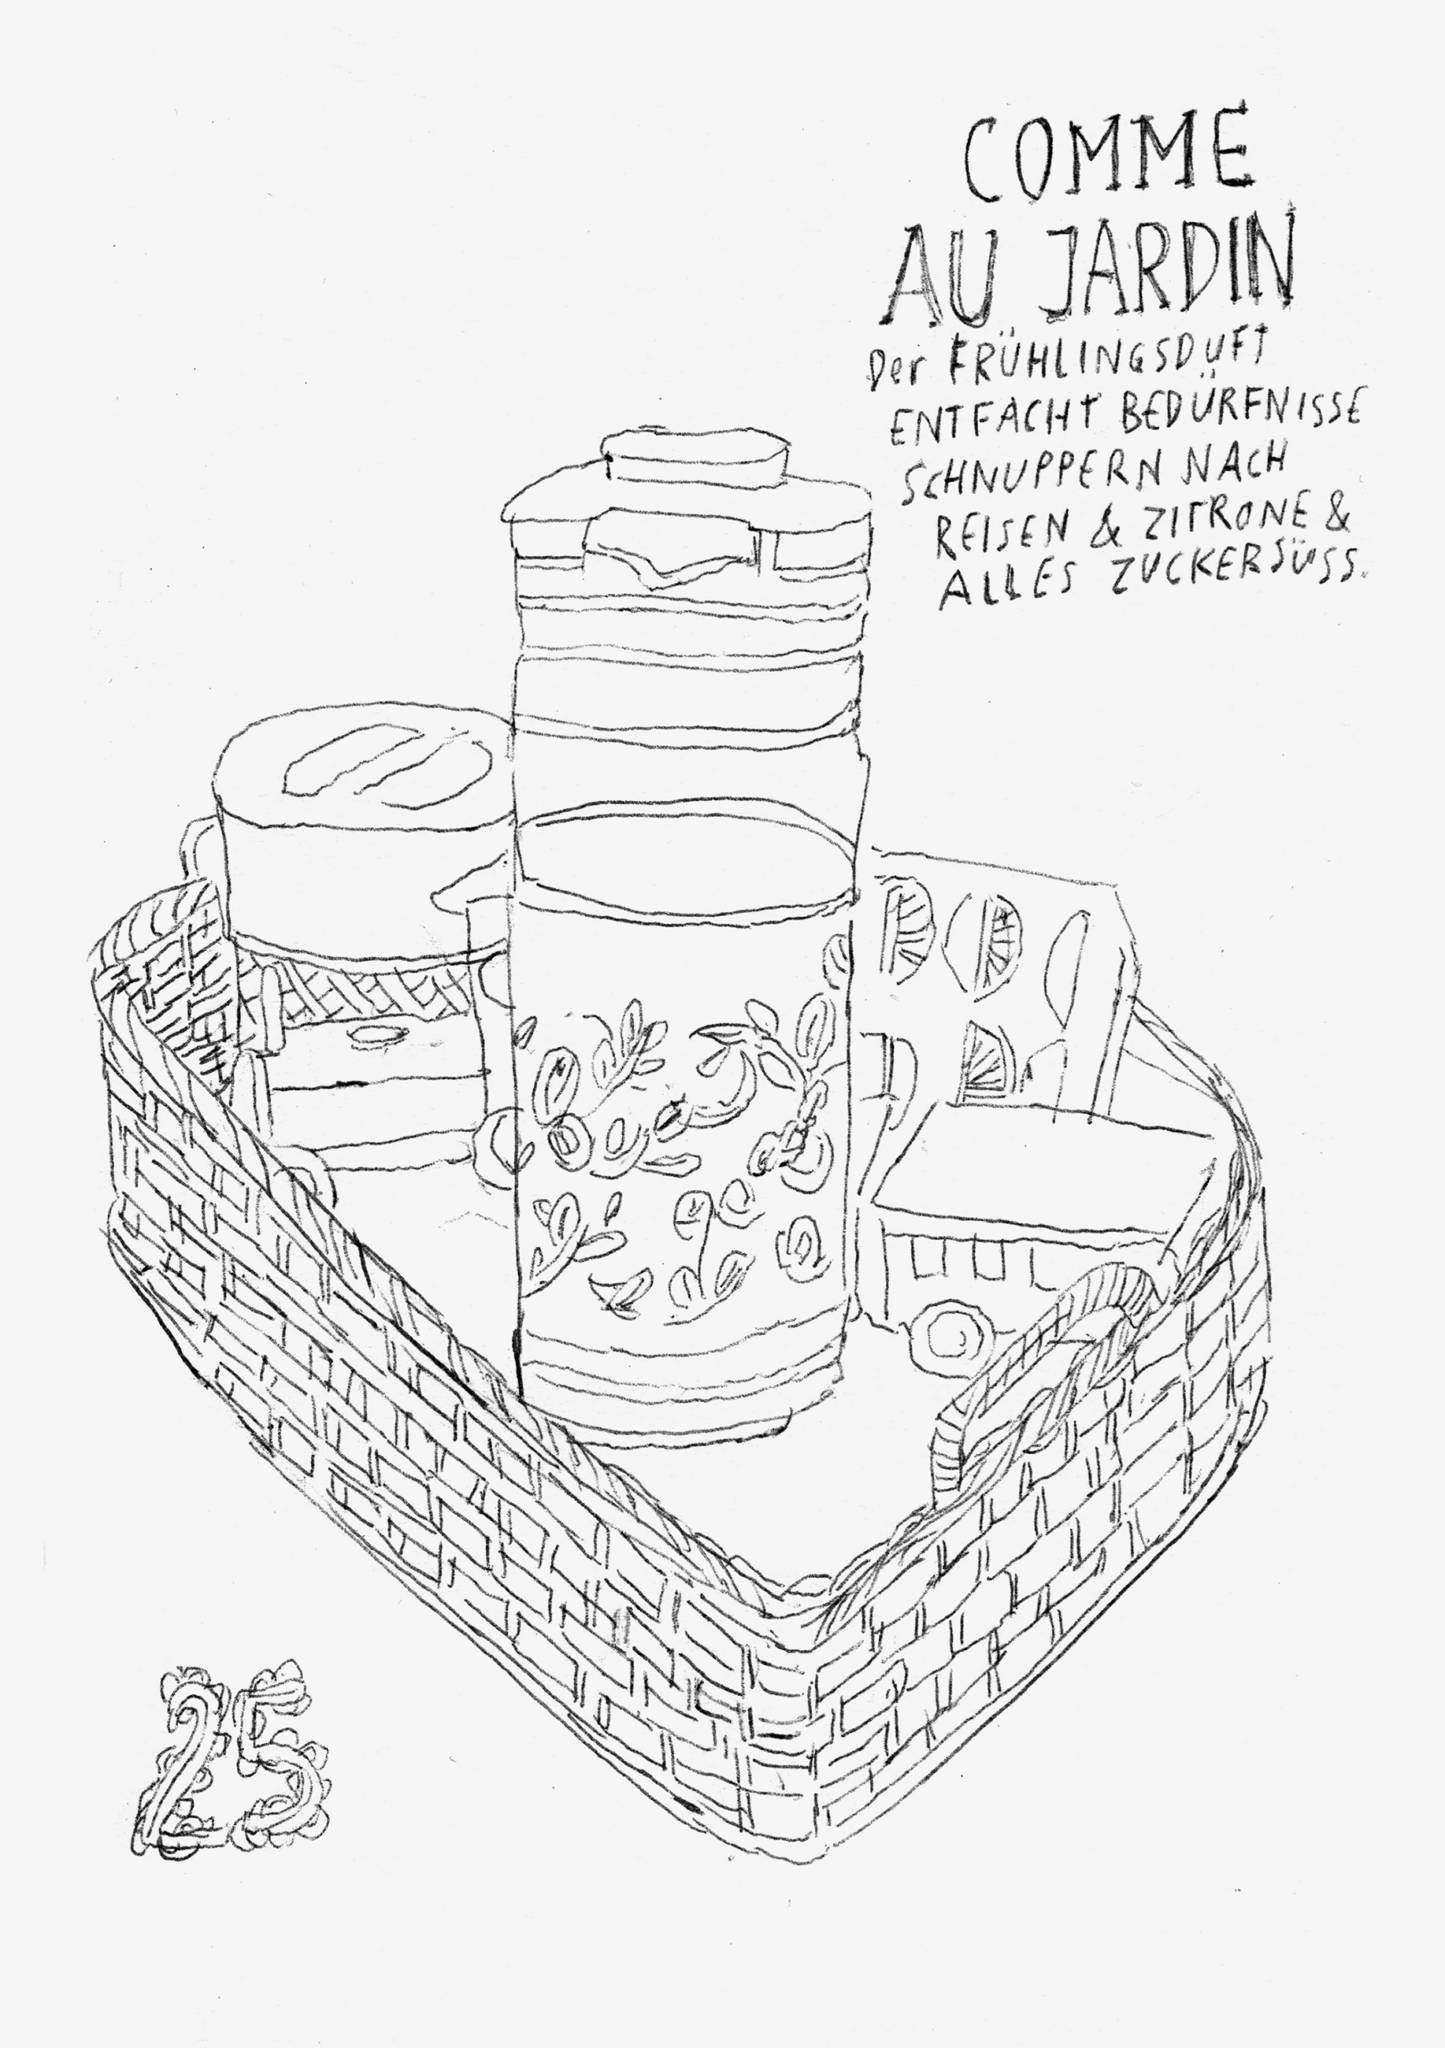 COMME
AU JARDIN
Der FRÜHLINGSDUFT
ENTFACHT BEDÜRFNISSE
SCHNUPPERN NACH
REISEN & ZITRONE &
ALLES ZUCKERSÜSS.
25